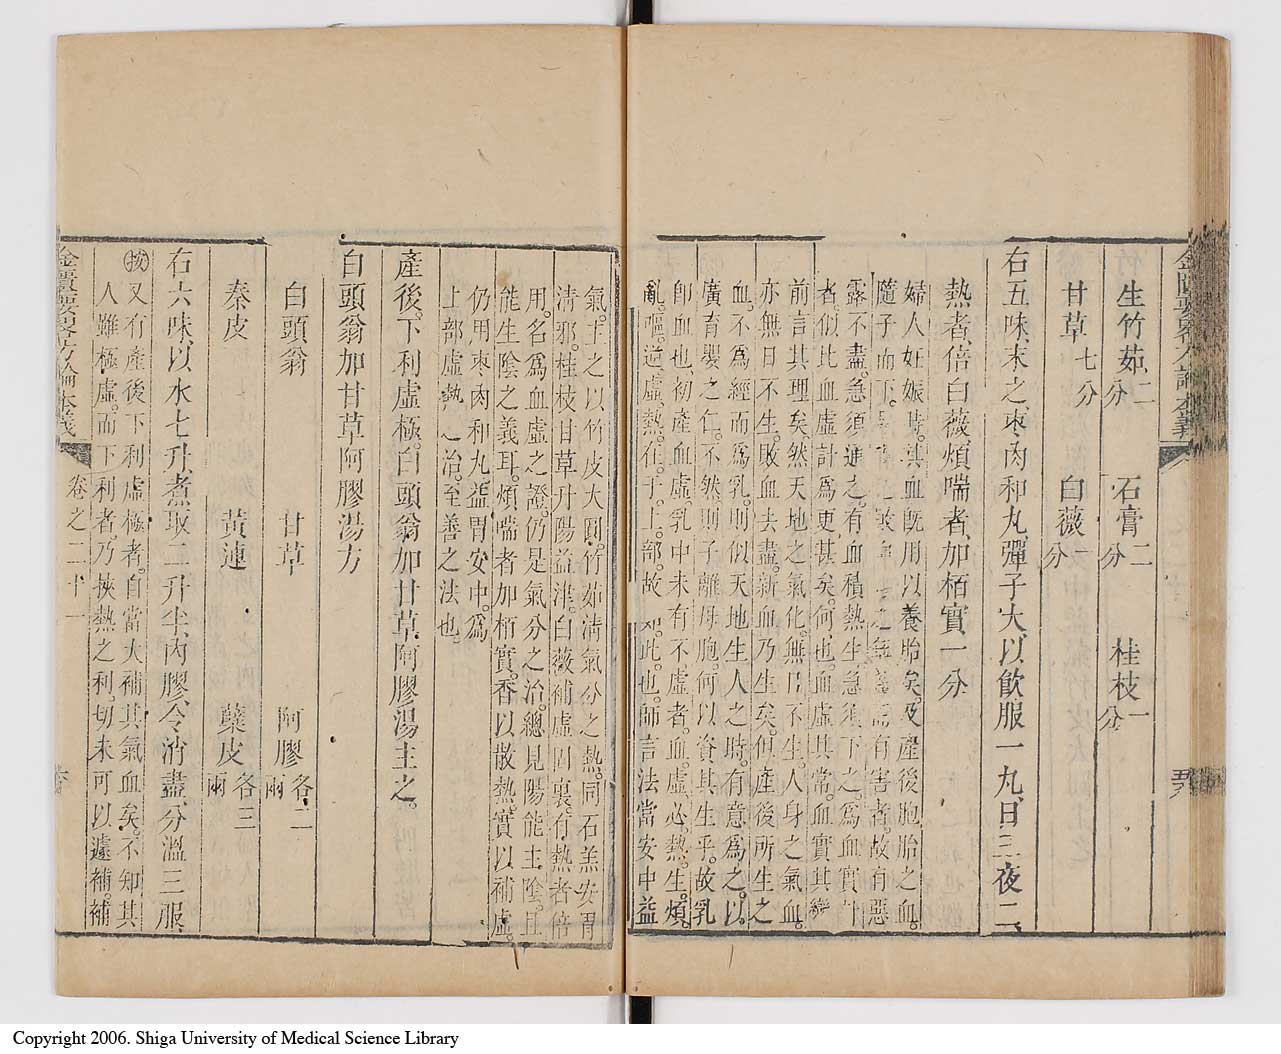 生竹茹二分　石膏二分　桂枝一分
甘草七分　白薇一分
右五味末之棗肉和丸彈子大以飲服一丸日三夜二
熱者倍白薇煩喘者加栢實一分
婦人妊娠時其血既用以養胎矣及產後胞胎之血
隨子而下有害者故有惡
露不盡急須進之有血積熱生急須下之爲血實計
者似此血虛計爲更甚矣何也血虛其常血實其
前言其理矣然天地之氣化無日不生人身之氣血
亦無日不生敗血去盡新血乃生矣但產後所生之
血不爲經而爲乳則似天地生人之時有意爲之以
廣育嬰之仁不然則子離母胞何以資其生乎故乳
卽血也初產血虛乳中未有不虛者血虛必熱生煩
亂嘔逆虛熱在于上部故此也師言法當安中益
氣主之以竹皮大圓竹茹淸氣分之熱同石羔安胃
淸邪桂枝甘草升陽益津白薇補虛固裏有熱者倍
用名爲血虛之證仍是氣分之治總見陽能主陰且
能生陰之義耳煩喘者加栢實香以散熱實以補虛
仍用棗肉和丸益胃安中爲
上部虛熱治至善之法也
產後下利虛極白頭翁加甘草阿膠湯主之
白頭翁加甘草阿膠湯方
白頭翁　甘草　阿膠各二兩
秦皮　黃連　蘗皮各三兩
右六味以水七升煮取二升半內膠令消盡分溫三服
按又有產後下利虛極者自當大補其氣血矣不知其
人雖極虛而下利者乃挾熱之利切未可以遽補補
金匱要畧方論本義　卷之二十一
Copyright 2006. Shiga University of Medical Science Library